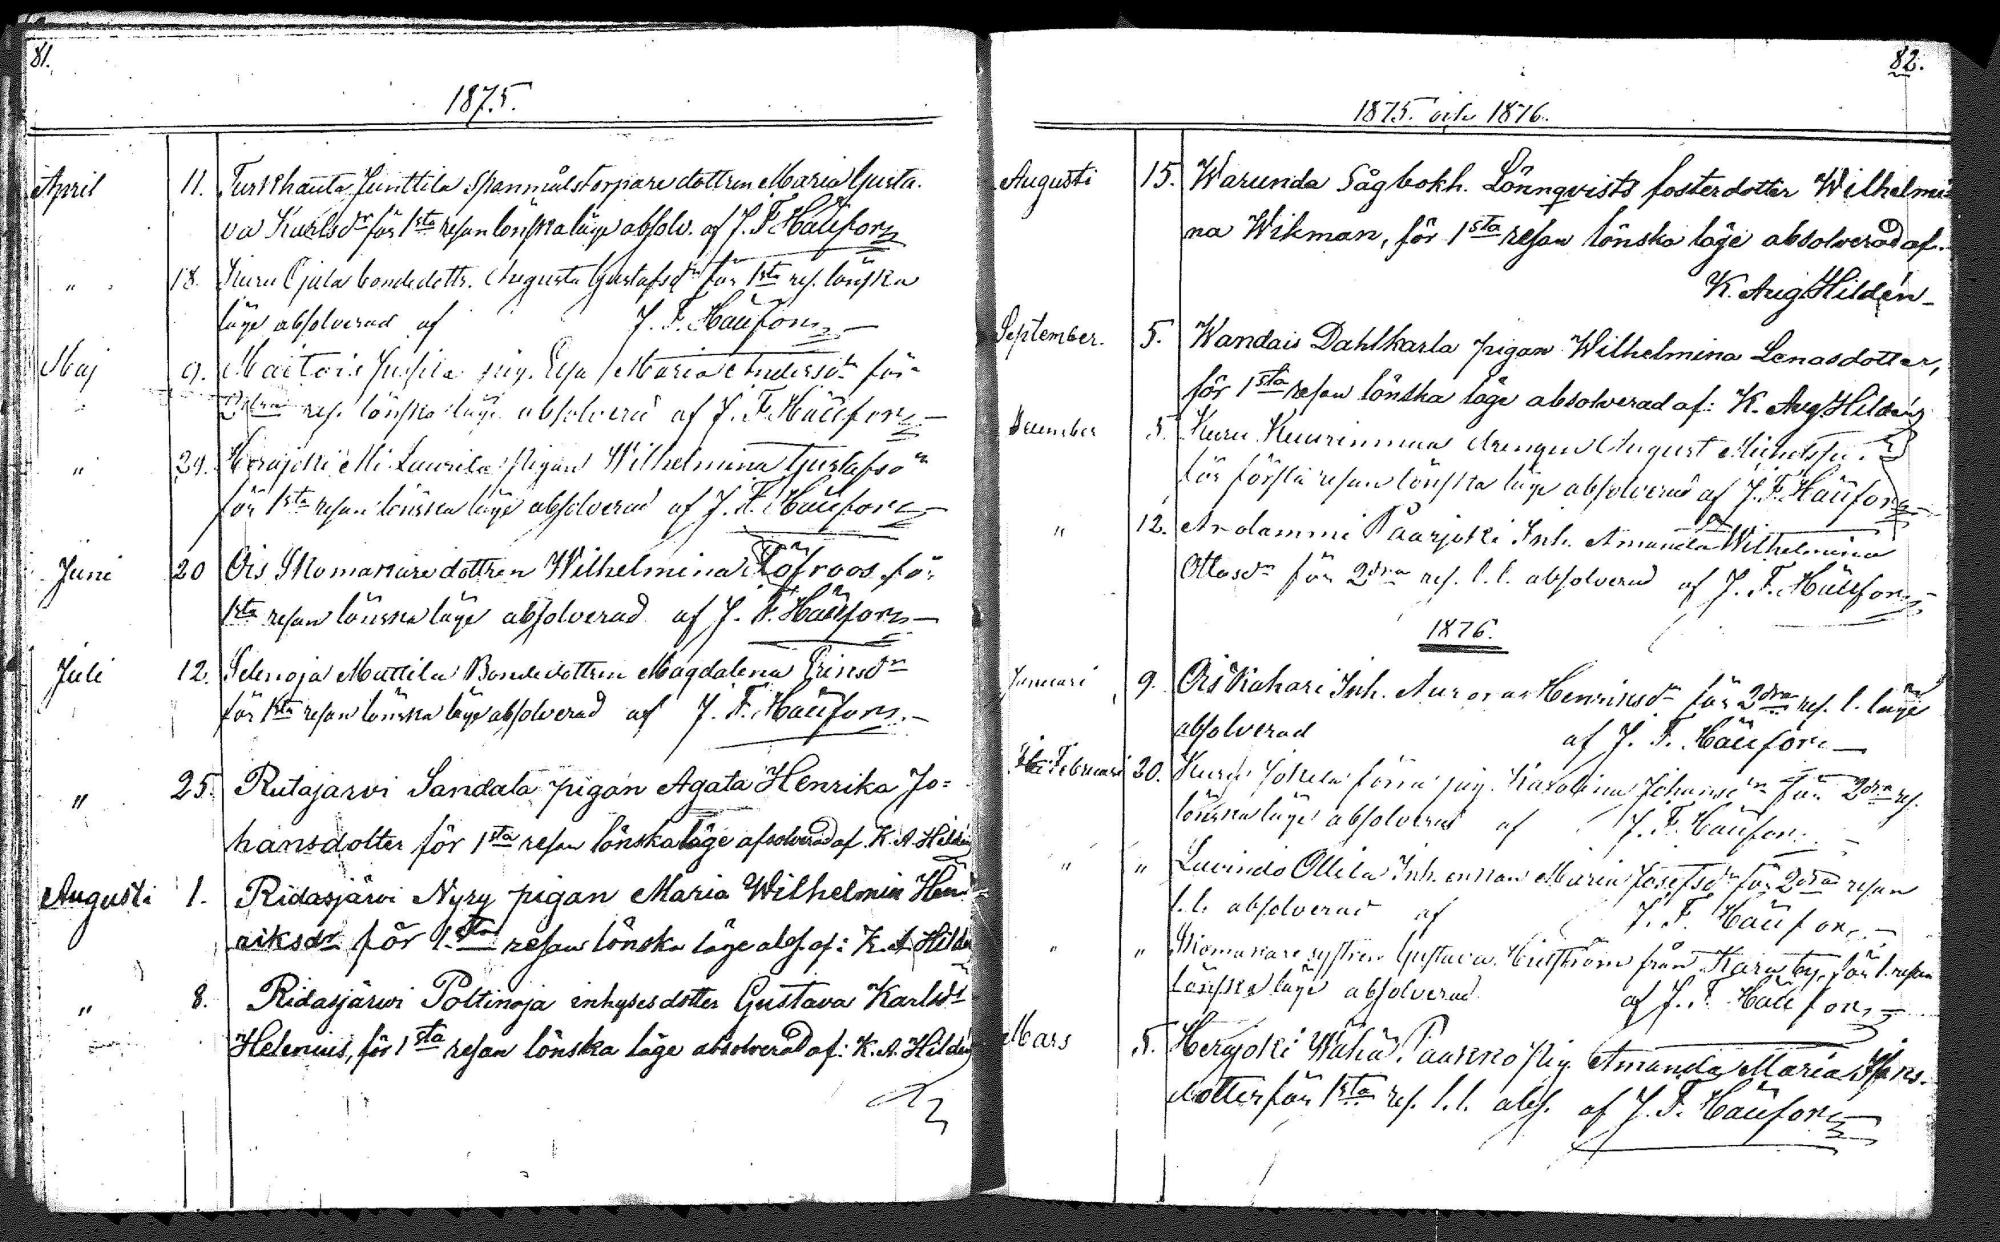 81.
1875.
April 11. Turkhauta Junttila Spanmålstorpare dottren Maria Gusta-
va Karlsdr för 1sta resan lönskaläge absolv. af J. F. Häufors
" 18. Kuru Ojala bondedottr. Augusta Gustafsdr för 1sta res. lönska
läge absolverad af J. F. Häufors
Maj 9. pig. Maria Andersdr för
2dra res. lönska läge absolverad af J. F. Häufors
" 29. Laurila pigan Wilhelmina Gustafsdr
för 1sta resan lönska läge absolverad af J. F. Häufors
Juni 20 Ois Skomakaredottren Wilhelmina Löfroos för
1sta resan lönska läge absolverad af J. F. Häufors
Juli 12. Selenoja Mattila Bondedottren Magdalena Eriksdr
för 1sta resan lönska läge absolverad af J. F. Häufors
" 25. Rutajärvi Sandala pigan Agata Henrika Jo=
hansdotter för 1sta resan lönskaläge absolverad af K. A. Hildén
Augusti 1. Ridasjärvi Nyry pigan Maria Wilhelmin Hen-
riksdr för 1.sta resan lönska läge abs. af: K. A. Hildén
" 8. Ridasjärwi Poltinoja inhysesdotter Gustava Karlsdr
Helenius, för 1sta resan lönska läge absolverad af: K. A. Hildén
82.
1875. och 1876.
Augusti 15. Warunda Sågbokh. Lönnqvists fosterdotter Wilhelmi-
na Wikman, för 1sta resan lönska läge absolverad af.
K. Aug Hildén
September. 5. Wandais Dahlkarla pigan Wilhelmina Lenasdotter,
för 1sta resan lönska läge absolverad af: K. Aug Hildén
December 5. Kuru drengen August
för första resan lönska läge absolverad af J. F. Häufors
" 12. Inh. Amanda Wilhelmina
Ottosdr för 2dra res. l. l. absolverad af J. F. Häufors
1876.
Januari 9. Ois Inh. Aurora Henriksdr för 2dra res. l. läge
absolverad af J. F. Häufors
Februari 20. Kuru Jokela förra pig. Karolina för 2dra res.
lönska läge absolverad af J. F. Häufors
" " Ollila Inh. enkan Maria Josefsdr för 2dra resan
l. l. absolverad af J. F. Häufors
" " Skomakare systren Gustava från Kara by, för 1. resan
lönska läge absolverad af J. F. Häufors
Mars 5. Herajoki Wähä Paakko Pig. Amanda Maria
dotter för 1sta res. l. l. abs. af J. F. Häufors